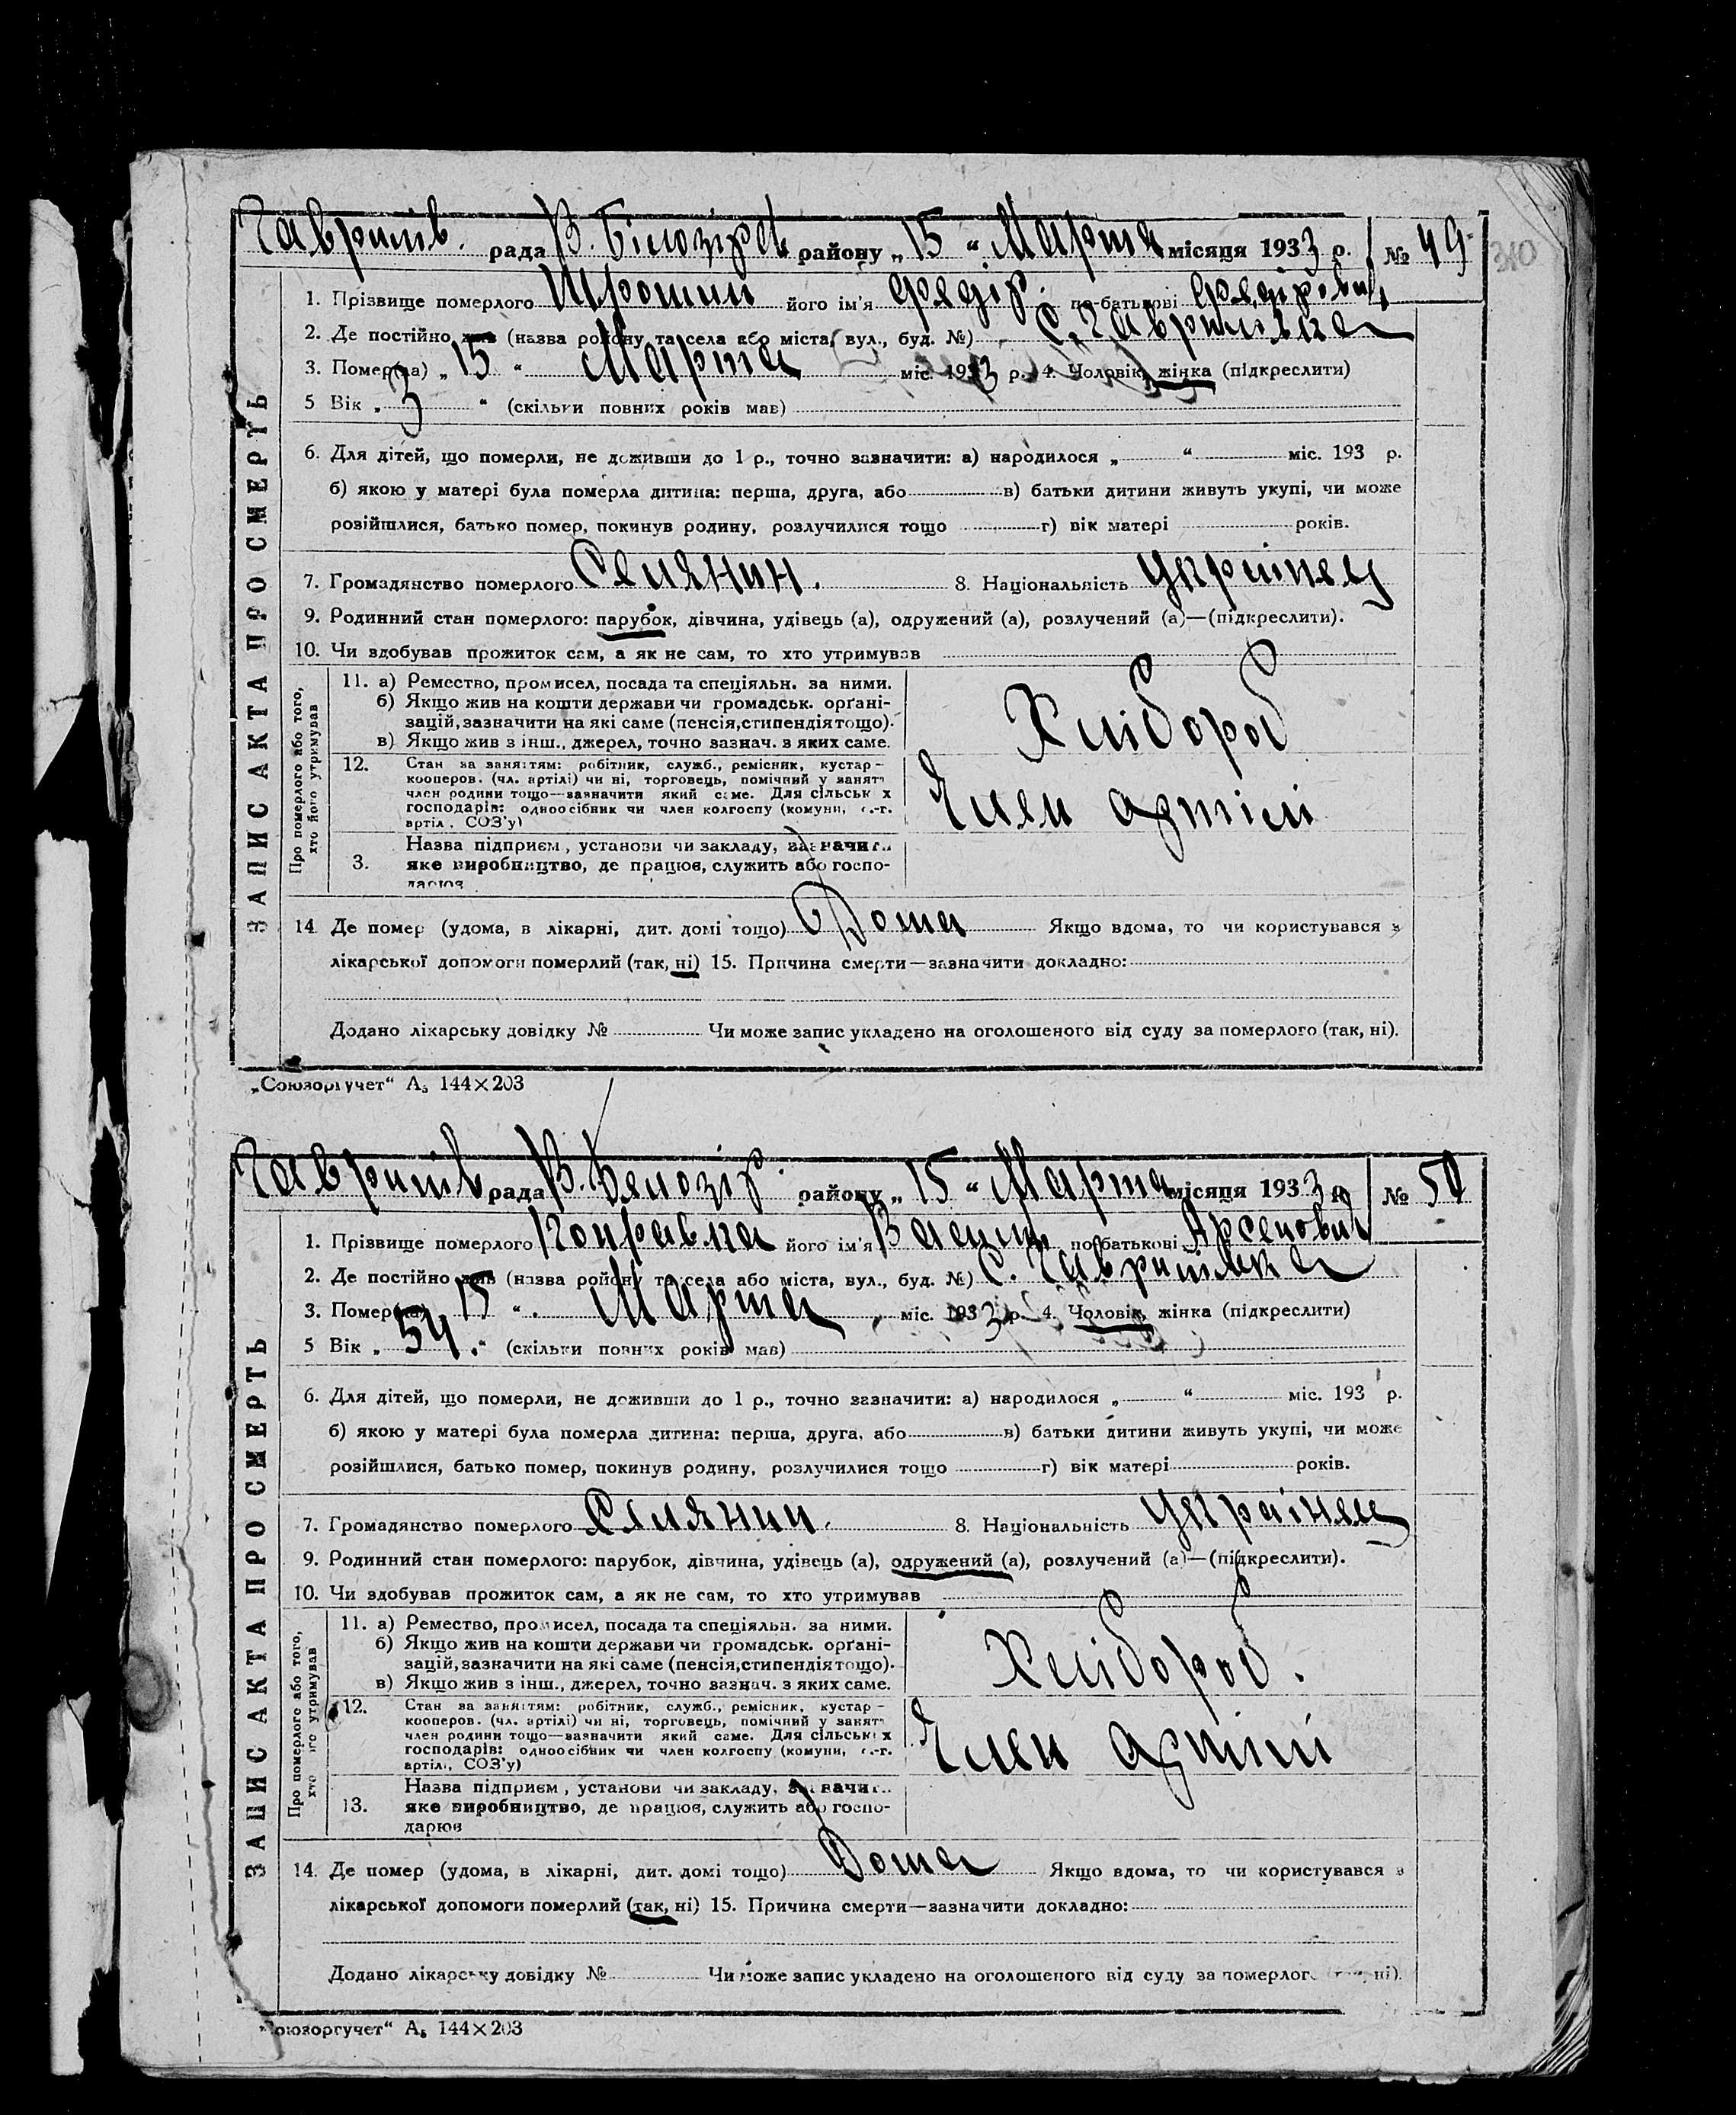 Гаврилів. рада В. Білозірсь району „15“ Марта місяця 1933 р. № 49
310
1. Прізвище померлого його ім'я Федір. по-батькові Федірович
2. Де постійно жив (назва району та села або міста, вул., буд. №) С. Гаврилівка
3. Помер(ла) „15“ Марта міс. 1933 р. 4. Чоловік, жінка (підкреслити)
5 Вік „3“ (скільки повних років мав)
6. Для дітей, що померли, не доживши до 1 р., точно зазначити: а) народилося „ “ міс. 193 р.
б) якою у матері була померла дитина: перша, друга, або в) батьки дитини живуть укупі, чи може
розійшлися, батько помер, покинув родину, розлучилися тощо г) вік матері років.
7. Громадянство померлого Селянин. 8. Національність Украінец
9. Родинний стан померлого: парубок, дівчина, удівець (а), одружений (а), розлучений (а)—(підкреслити).
10. Чи здобував прожиток сам, а як не сам, то хто утримував
11. а) Ремество, промисел, посада та спеціяльн. за ними.
б) Якщо жив на кошти держави чи громадськ. органі-
зацій, зазначити на які саме (пенсія, стипендія тощо).
в) Якщо жив з інш., джерел, точно зазнач. з яких саме.
Хлібороб
12. Стан за заняттям: робітник, служб., ремісник, кустар-
кооперов. (чл. артілі) чи ні, торговець, помічний у занятт
член родини тощо—зазначити який саме. Для сільськ х
господарів: одноосібник чи член колгоспу (комуни, с.-г.
артіл., СОЗ'у)
Член артілі
3. Назва підприєм, установи чи закладу, зазначит..
яке виробництво, де працює, служить або госпо-
дарює
Про померлого або того,
хто його утримував
14 Де помер (удома, в лікарні, дит. домі тощо) Дома Якщо вдома, то чи користувався з
лікарської допомоги померлий (так, ні) 15. Причина смерти—зазначити докладно:
Додано лікарську довідку № Чи може запис укладено на оголошеного від суду за померлого (так, ні).
ЗАПИС АКТА ПРО СМЕРТЬ
„Союзоргучет“ А₅ 144×203
Гаврилів рада В. Белозір. району „15“ Марта місяця 1933 р. № 50
1. Прізвище померлого Коправка його ім'я Василь по-батькові Арсенович
2. Де постійно жив (назва району та села або міста, вул., буд. №) С. Гаврилівка
3. Помер(ла) 15 “ Марта міс. 1933 р. 4. Чоловік, жінка (підкреслити)
5 Вік „54.“ (скільки повних років мав)
6. Для дітей, що померли, не доживши до 1 р., точно зазначити: а) народилося „ “ міс. 193 р.
б) якою у матері була померла дитина: перша, друга, або в) батьки дитини живуть укупі, чи може
розійшлися, батько помер, покинув родину, розлучилися тощо г) вік матері років.
7. Громадянство померлого Селянин. 8. Національність Украінец
9. Родинний стан померлого: парубок, дівчина, удівець (а), одружений (а), розлучений (а)—(підкреслити).
10. Чи здобував прожиток сам, а як не сам, то хто утримував
11. а) Ремество, промисел, посада та спеціяльн. за ними.
б) Якщо жив на кошти держави чи громадськ. органі-
зацій, зазначити на які саме (пенсія, стипендія тощо).
в) Якщо жив з інш., джерел, точно зазнач. з яких саме.
Хлібороб.
12. Стан за заняттям: робітник, служб., ремісник, кустар-
кооперов. (чл. артілі) чи ні, торговець, помічний у занятт
член родини тощо—зазначити який саме. Для сільськ х
господарів: одноосібник чи член колгоспу (комуни, с.-г.
артіл., СОЗ'у)
Член артілі
13. Назва підприєм, установи чи закладу, зазначит..
яке виробництво, де працює, служить або госпо-
дарює
Про померлого або того,
хто його утримував
14. Де помер (удома, в лікарні, дит. домі тощо) Дома Якщо вдома, то чи користувався з
лікарської допомоги померлий (так, ні) 15. Причина смерти—зазначити докладно:
Додано лікарську довідку № Чи може запис укладено на оголошеного від суду за померлого (так, ні).
ЗАПИС АКТА ПРО СМЕРТЬ
„Союзоргучет“ А₅ 144×203